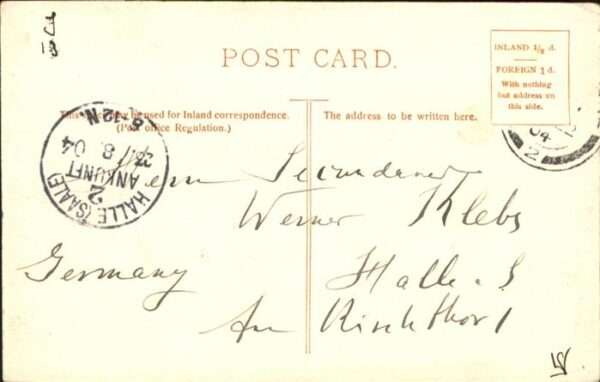 POST CARD.
INLAND 1/2 d.
FOREIGN 1 d.
With nothing
but address on
this side.
This space may be used for Inland correspondence.
(Post office Regulation.)
The address to be written here.
HALLE (SAALE)
ANKUNFT
2
8 04
8-12 N
04
2
Herrn Secundaner
Werner Klebs
Germany
Halle. S
Am Kirchthor 1